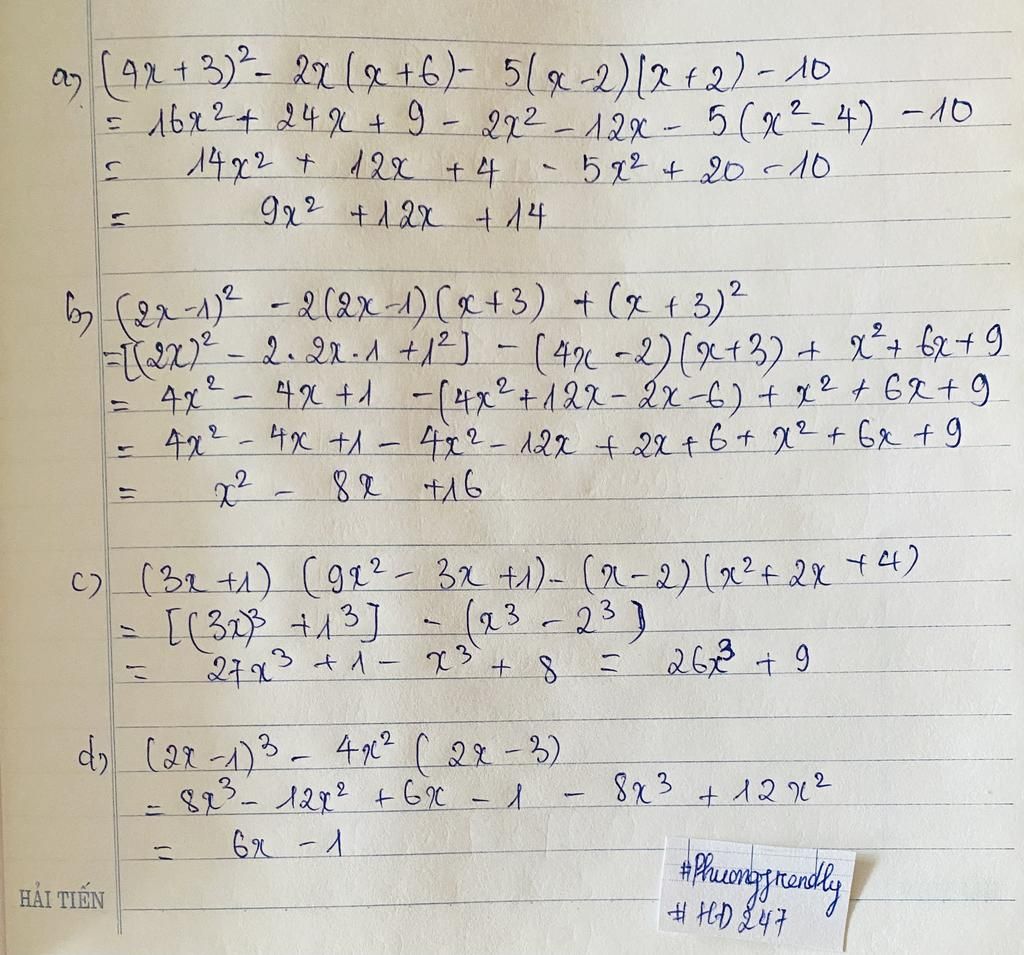 a) (4x + 3)² - 2x(x+6) - 5(x-2)(x+2) - 10
= 16x² + 24x + 9 - 2x² - 12x - 5(x² - 4) - 10
= 14x² + 12x + 4 - 5x² + 20 - 10
= 9x² + 12x + 14
b) (2x-1)² - 2(2x-1)(x+3) + (x+3)²
= [(2x)² - 2.2x.1 + 1²] - (4x - 2)(x+3) + x² + 6x + 9
= 4x² - 4x + 1 - (4x² + 12x - 2x - 6) + x² + 6x + 9
= 4x² - 4x + 1 - 4x² - 12x + 2x + 6 + x² + 6x + 9
= x² - 8x + 16
c) (3x + 1) (9x² - 3x + 1) - (x - 2)(x² + 2x + 4)
= [(3x)³ + 1³] - (x³ - 2³)
= 27x³ + 1 - x³ + 8 = 26x³ + 9
d) (2x - 1)³ - 4x² (2x - 3)
= 8x³ - 12x² + 6x - 1 - 8x³ + 12x²
= 6x - 1
HẢI TIẾN
#Phuongfrendly
#HD247